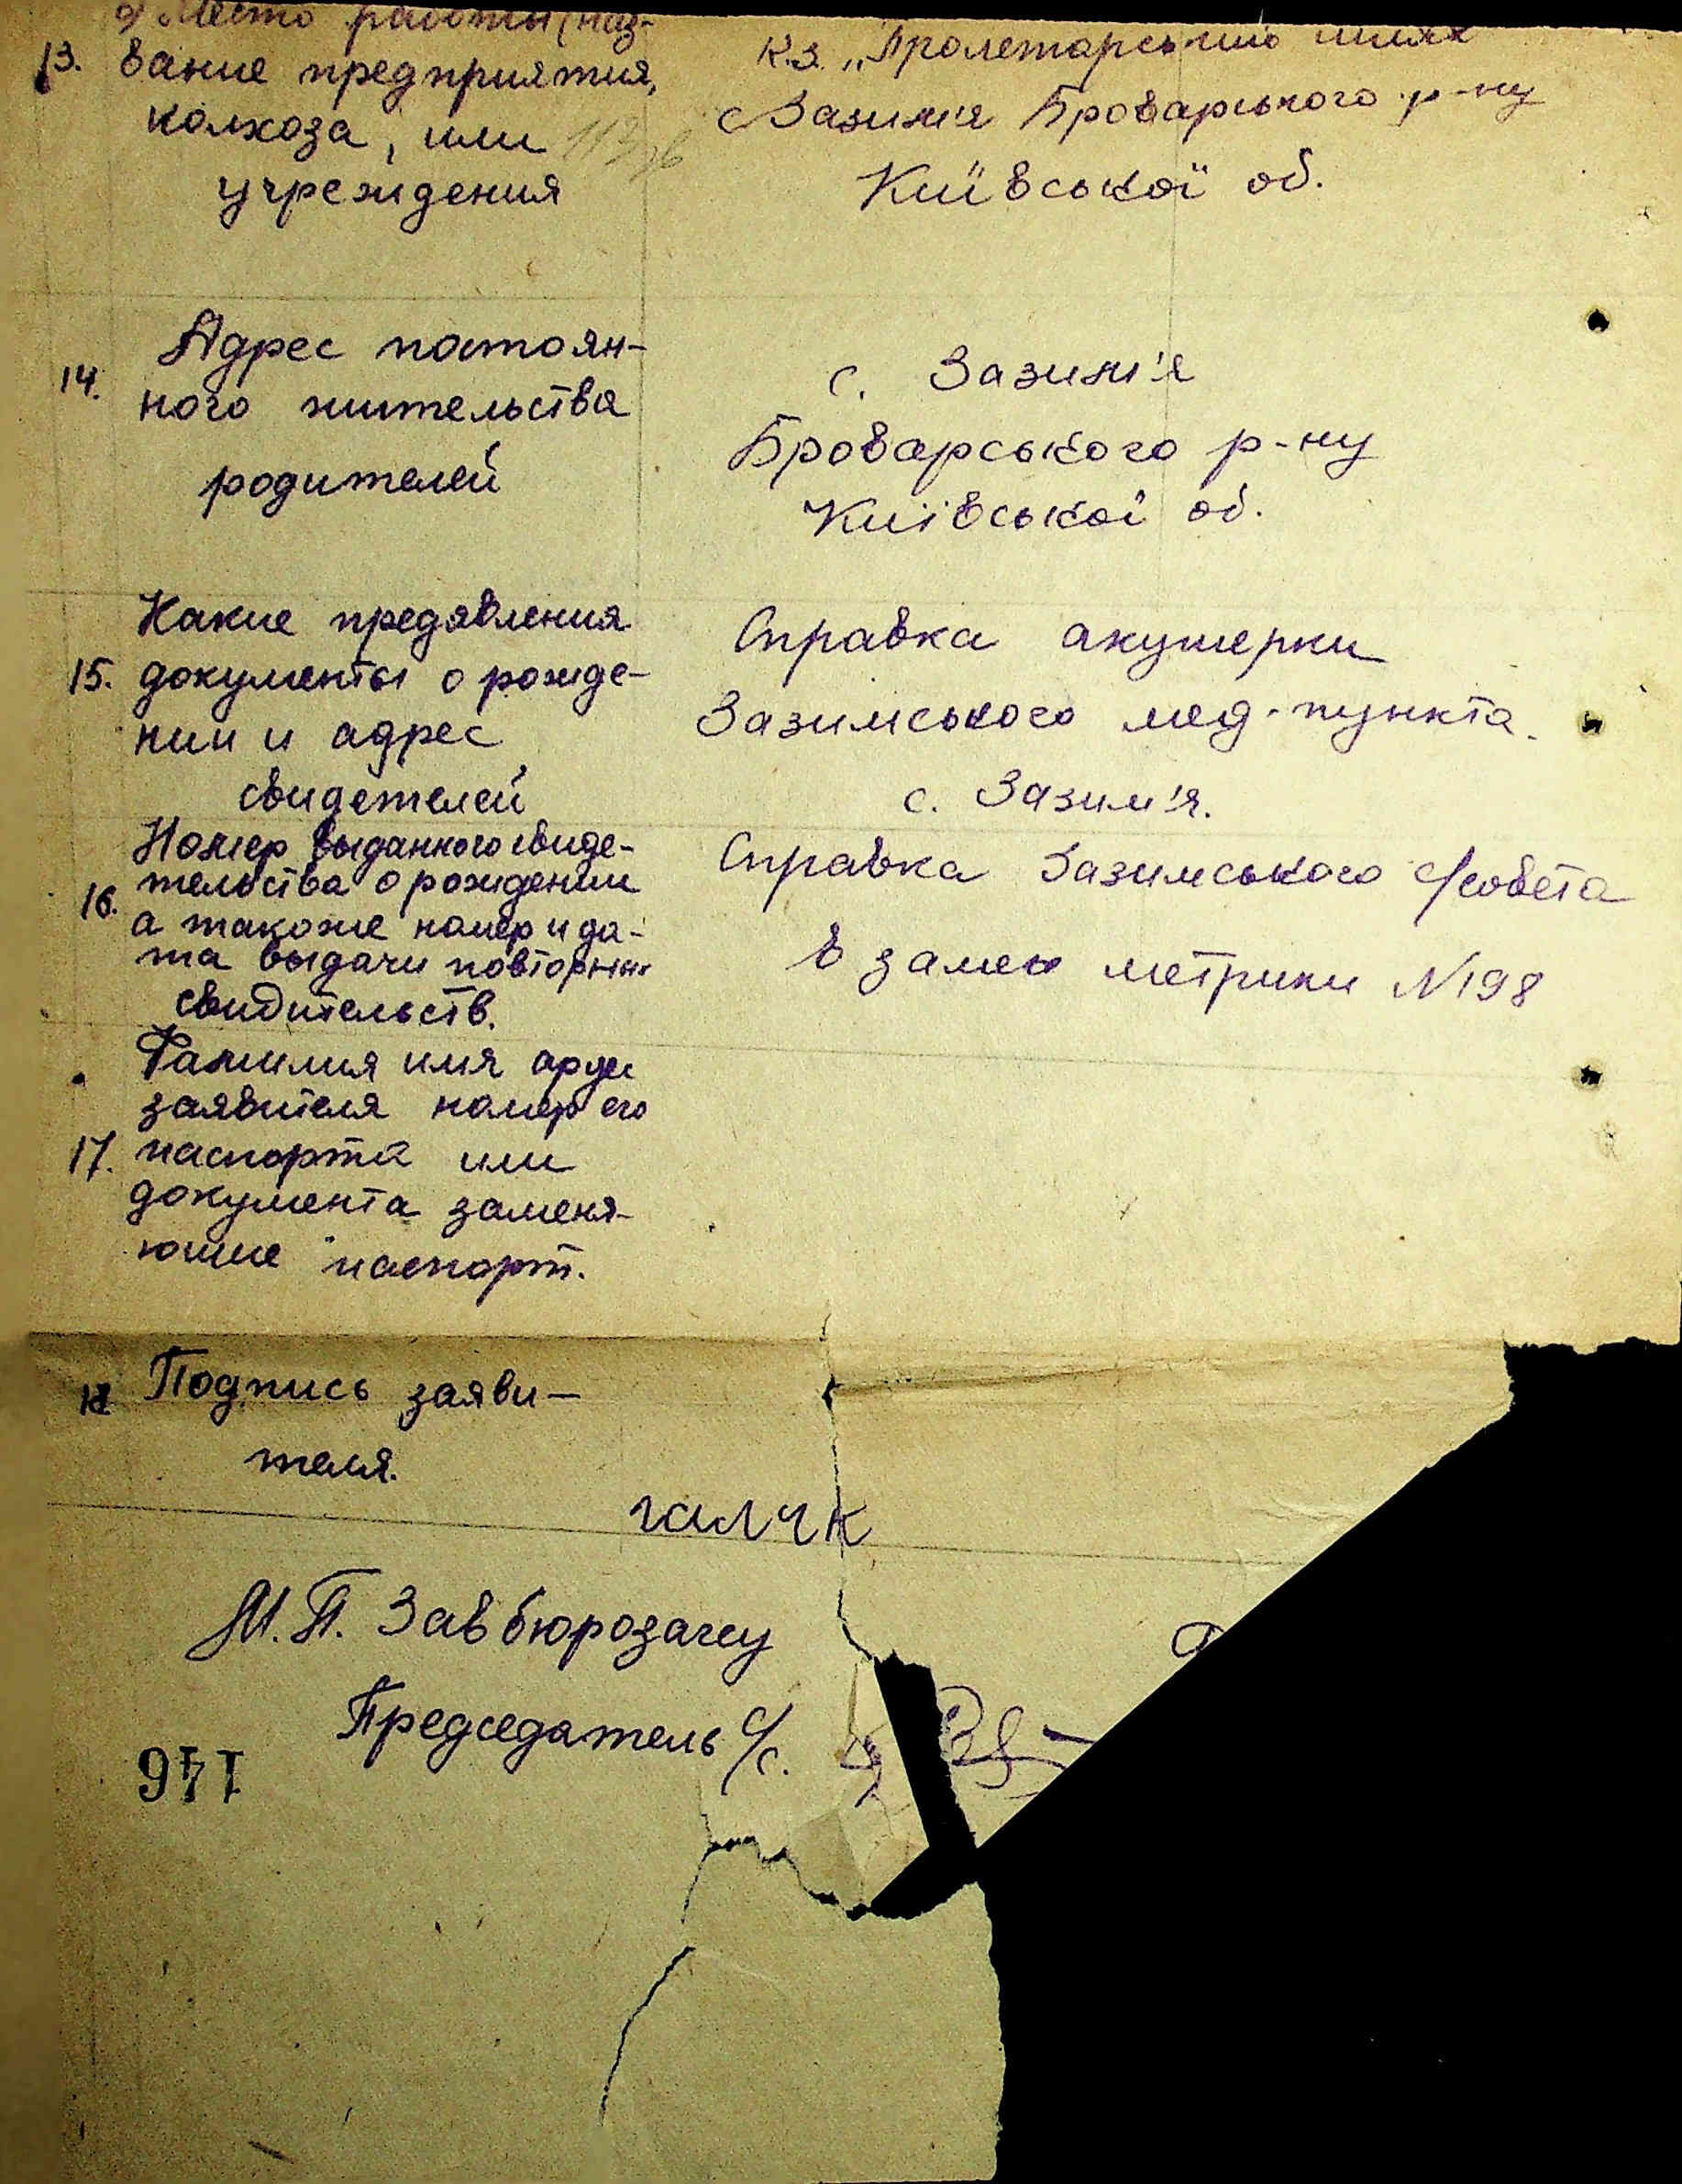 а) Место работы (наз-
13. вание предприятия,
колхоза, или
учреждения
К.з. „Пролетарський шлях
с Зазим'я Броварського р-ну
Київської об.
14. Адрес постоян-
ного жительства
родителей
с. Зазим'я
Броварського р-ну
Київської об.
Какие предявления
15. документы о рожде-
нии и адрес
свидетелей
Справка акушерки
Зазимського мед-пункта.
с. Зазим'я.
Номер выданного свиде-
16. тельства о рождении
а такоже номер и да-
та выдачи повторных
свидительств.
Справка Зазимського с/совета
в замен метрики N198
Фамилия имя адрес
заявителя номер его
17. паспорта или
документа заменя-
ющие паспорт.
18 Подпись заяви-
теля.
галчк
М.П. Завбюрозагсу
Председатель с/с.
146